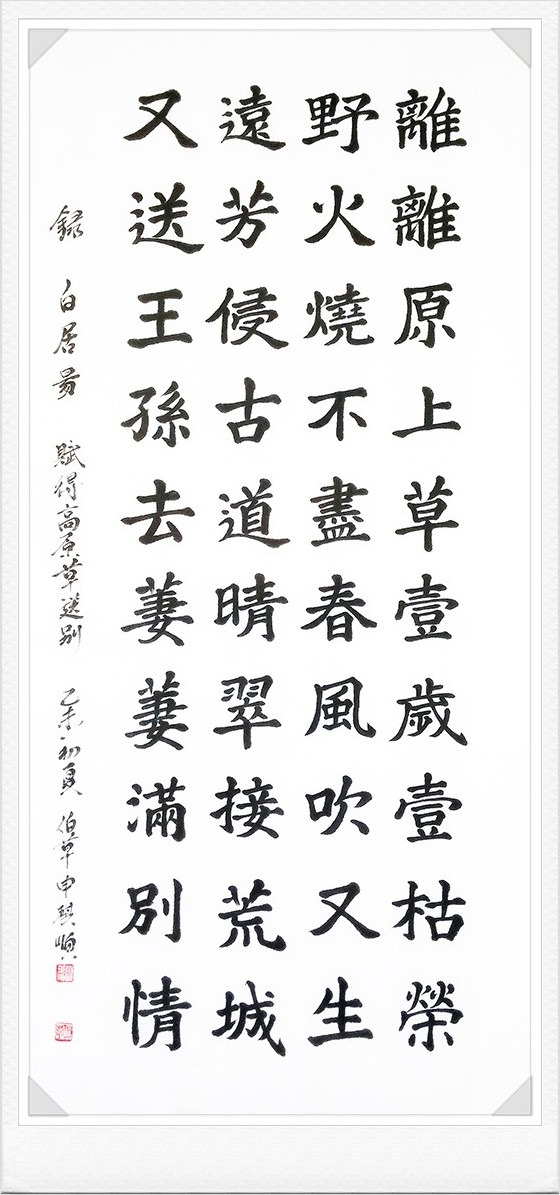 離離原上草壹歲壹枯榮
野火燒不盡春風吹又生
遠芳侵古道晴翠接荒城
又送王孫去萋萋滿別情
錄 白居易 賦得高原草送別 乙未初夏 伯草申